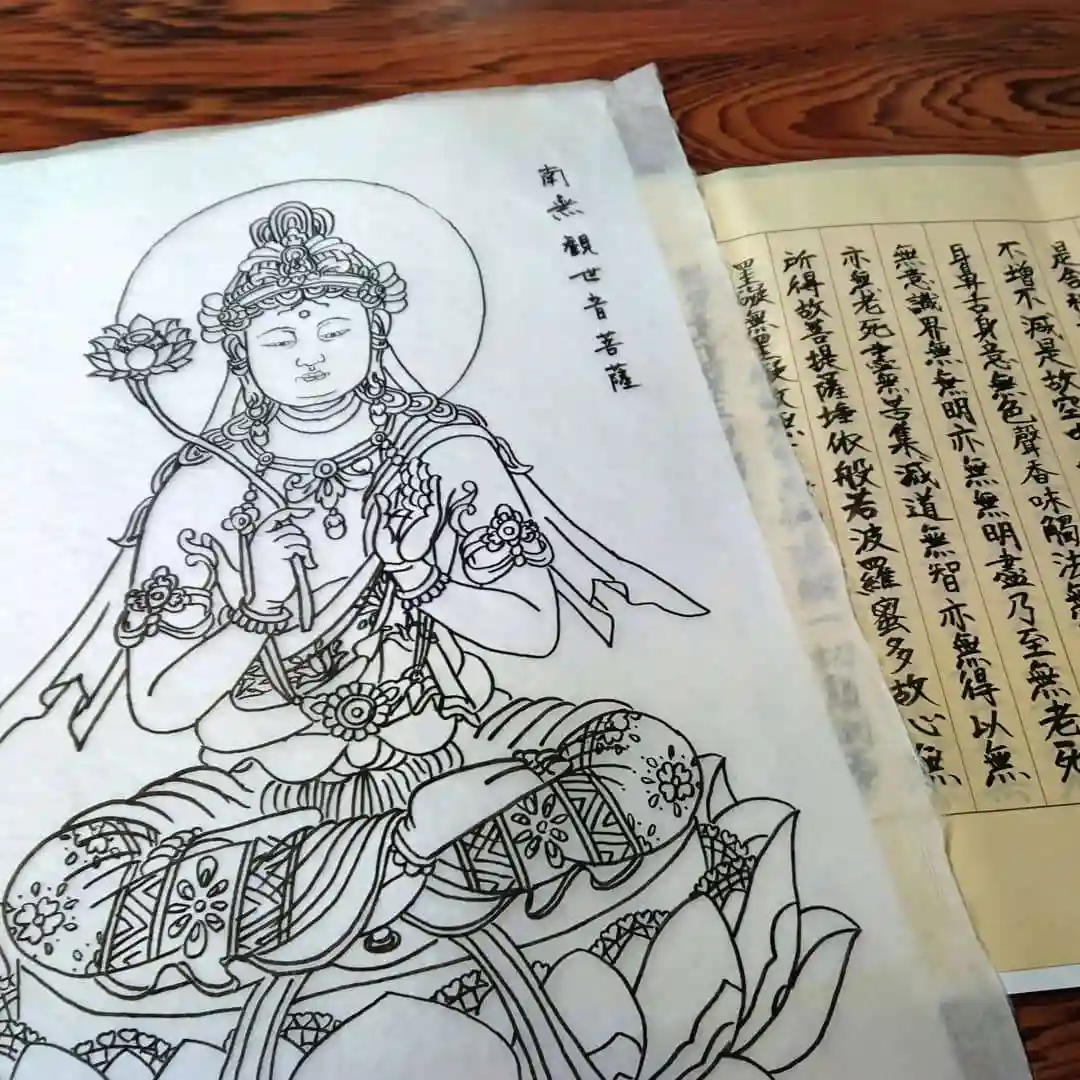 是舍
不增不減是故空
耳鼻舌身意無色聲香味觸法無
無意識界無無明亦無無明盡乃至無老死
亦無老死盡無苦集滅道無智亦無得以無
所得故菩提薩埵依般若波羅蜜多故心無
罣礙無罣礙故無
南無觀世音菩薩